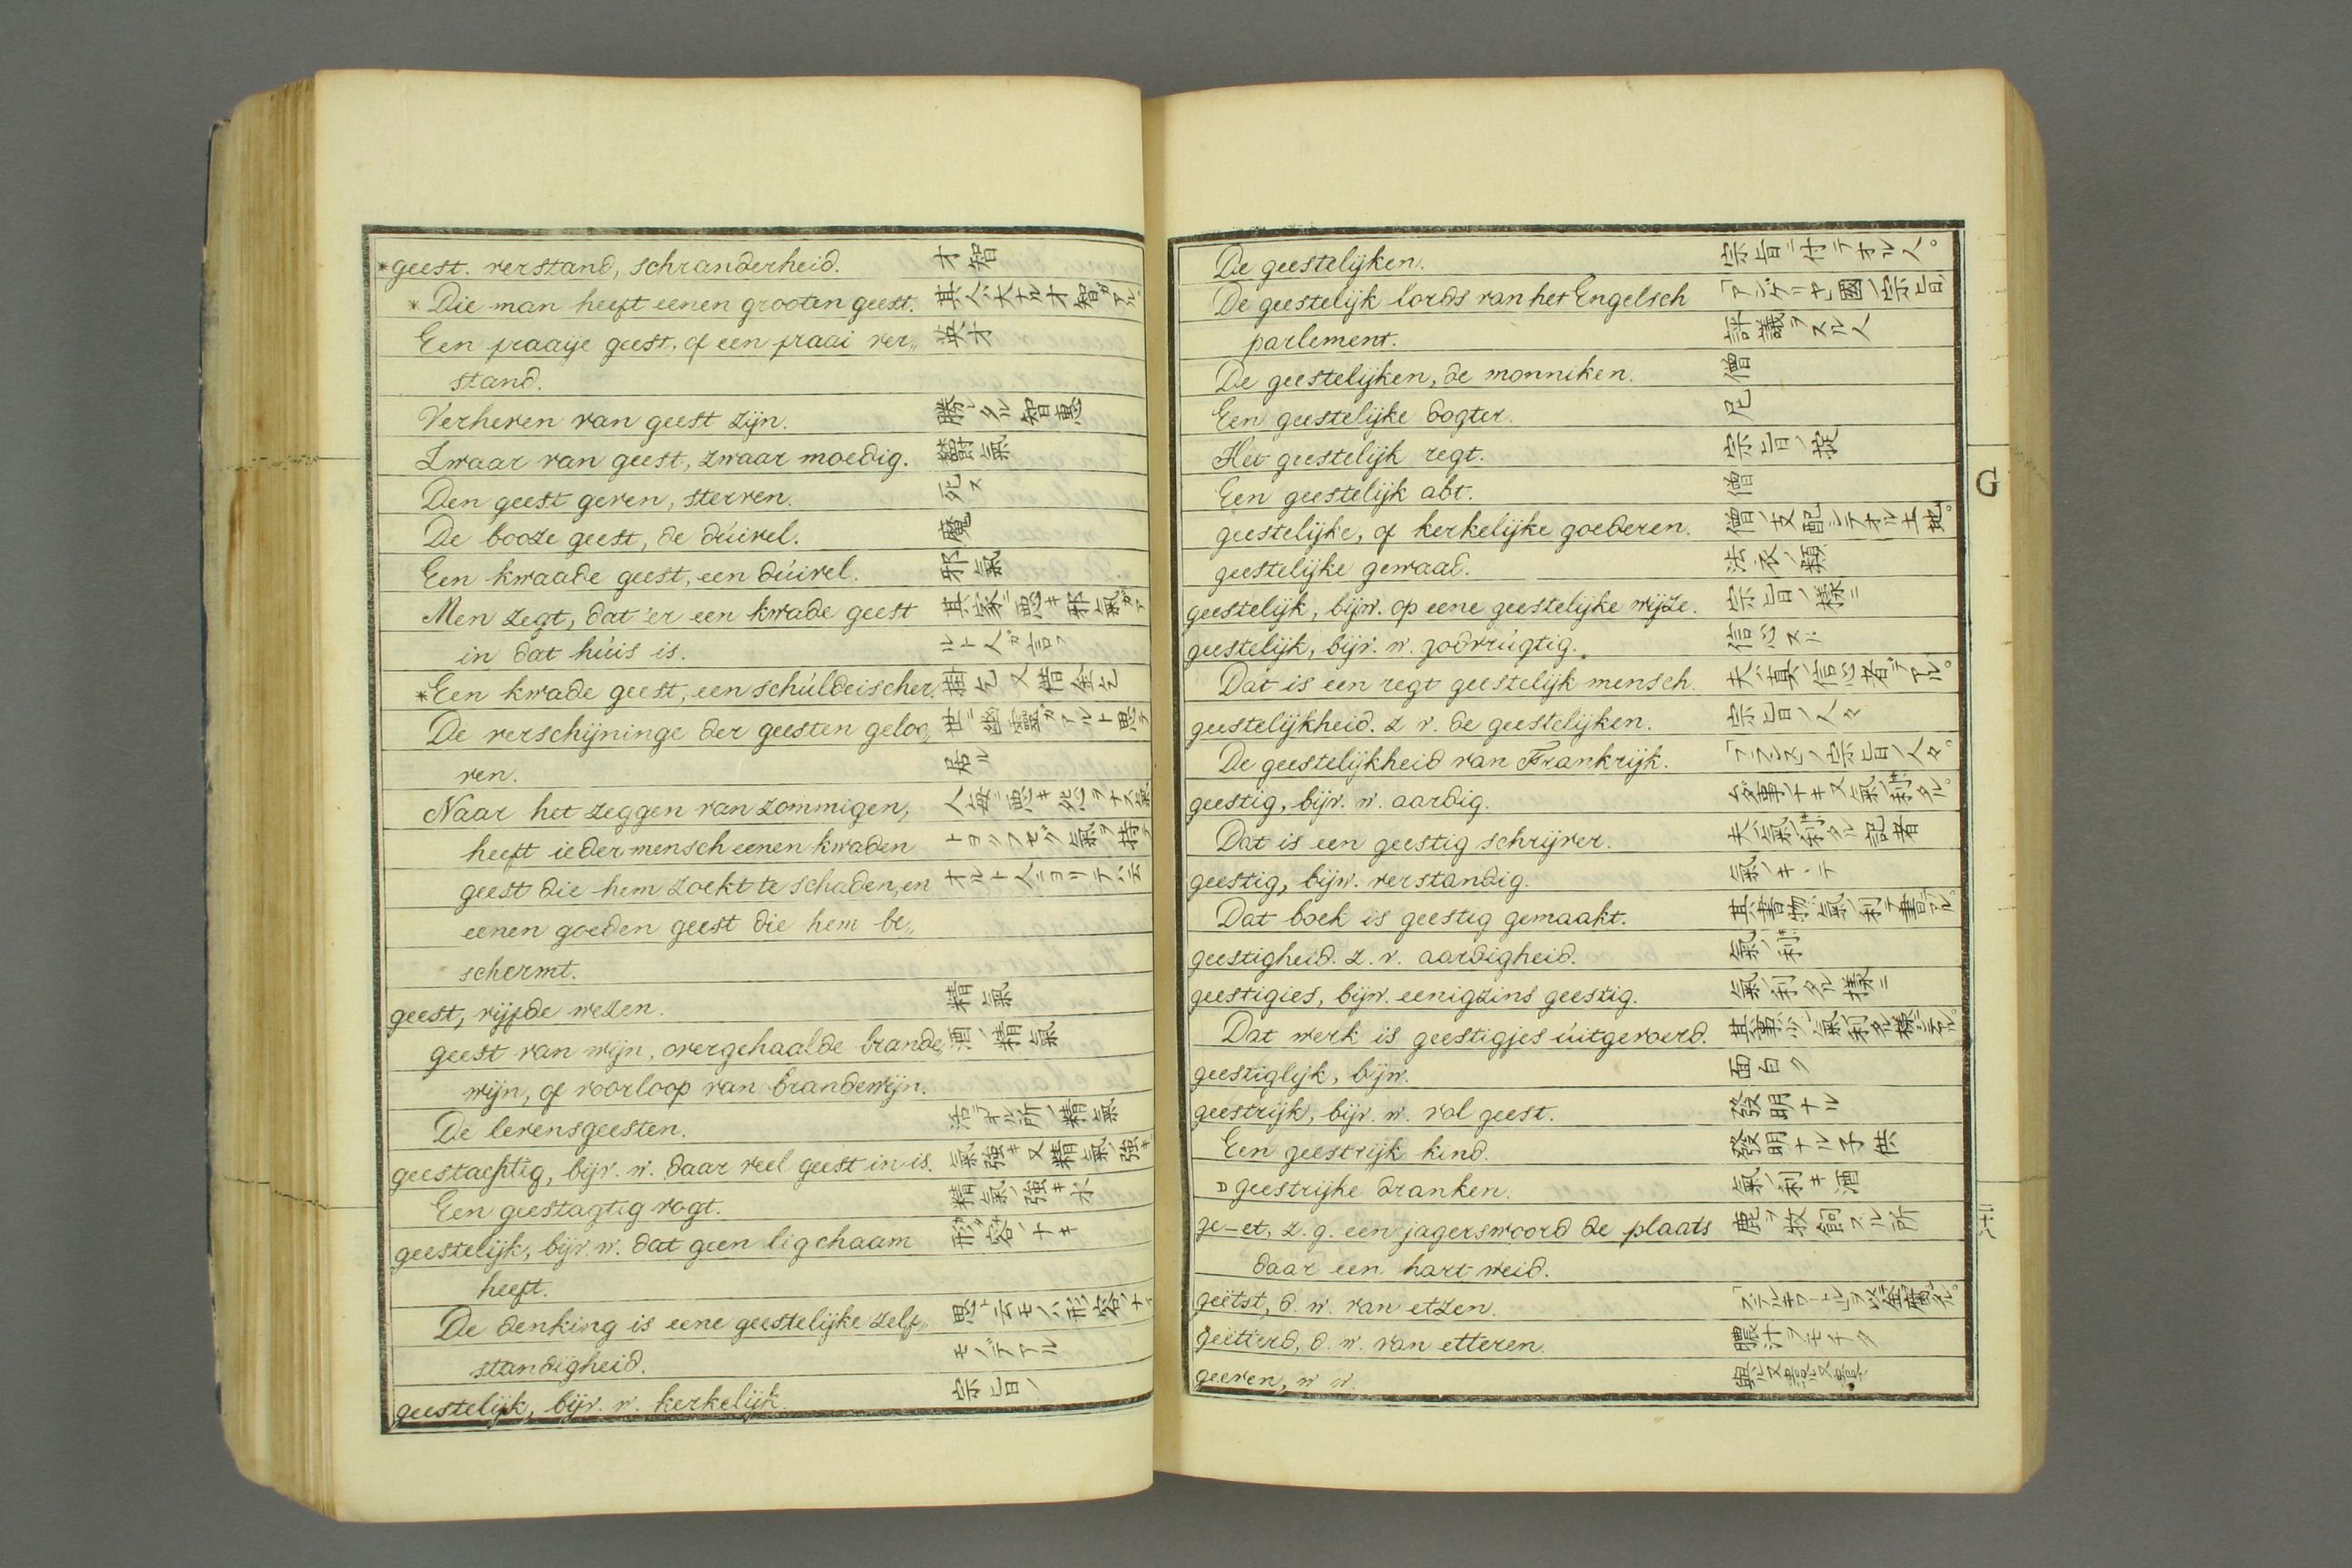 *geest. verstand, schranderheid. 才智
* Die man heeft eenen grooten geest. 其人ハ大ナル才智ガアル
Een fraaije geest, of een fraai ver„ 英才
stand.
Verheven van geest zijn. 勝レタル智恵
Zwaar van geest, zwaar moedig. 欝氣
Den geest geven, sterven. 死ス
De booze geest, de dúivel. 魔
Een kwaade geest, een dúivel. 邪氣
Men zegt, dat 'er een kwade geest 其家ニ悪キ邪氣ガア
in dat húis is. ルト人ガ言フ
*Een kwade geest, een schúldeischer. 掛乞又借金乞
De verschijninge der geesten geloo„ 世ニ幽靈ガアルト思テ
ven. 居ル
Naar het zeggen van zommigen, 人毎ニ悪キ
heeft ieder mensch eenen kwaden
geest die hem zoekt te schaden, en オルト人ニヨリテハ云
eenen goeden geest die hem be„
schermt.
geest, vijfde wezen. 精氣
geest van wijn, overgehaalde brande„ 酒ノ精氣
wijn, of voorloop van brandewijn.
De levensgeesten. 活テオル所ノ精氣
geestachtig, bijv. w. daar veel geest in is. 氣強キ又精氣ノ強キ
Een geestagtig vogt. 精氣ノ強キ水
geestelijk, bijv. w. dat geen ligchaam 形容ノナキ
heeft.
De denking is eene geestelijke zelf„ 思ト云モノハ形容ノナイ
standigheid. モノデアル
geestelijk, bijv. w. kerkelijk. 宗旨ノ
De geestelijken. 宗旨ニ付テオル人。
De geestelijk lords van het Engelsch 「アンゲリヤ國ノ宗旨
parlement. 評議ヲスル人
De geestelijken, de monniken. 僧
Een geestelijke dogter. 尼
Het geestelijk regt. 宗旨ノ掟
Een geestelijk abt. 僧
geestelijke, of kerkelijke goederen. 僧ノ支配シテオル土地。
geestelijke gewaad. 法衣ノ類
geestelijk, bijw. op eene geestelijke wijze. 宗旨ノ樣ニ
geestelijk, bijv. w. godvrúgtig. 信心スル
Dat is een regt geestelijk mensch. 夫ハ真ノ信心者デアル。
geestelijkheid. z v. de geestelijken. 宗旨ノ人々
De geestelijkheid van Frankrijk. 「フランス」ノ宗旨ノ人々。
geestig, bijv. w. aardig.
Dat is een geestig schrijver. 夫ハ氣ノ利タル記者
geestig, bijw. verstandig. 氣ノキヽテ
Dat boek is geestig gemaakt. 其書物ハ氣ノ利テ書テアル。
geestigheid. z. v. aardigheid. 氣ノ利
geestigies, bijw. eenigzins geestig. 氣ノ利タル樣ニ
Dat werk is geestigjes úitgevoerd.
geestiglijk, bijw. 面白ク
geestrijk, bijv. w. vol geest. 發明ナル
Een geestrijk kind. 發明ナル子供
geestrijke dranken. 氣ノ利キ酒
ge-et, z. g. een jagerswoord de plaats 鹿ヲ牧飼スル所
daar een hart weid.
geëtst, d. w. van etzen.
geëtterd, d. w. van etteren. 膿汁ヲモチタ
geeven, w w.
G